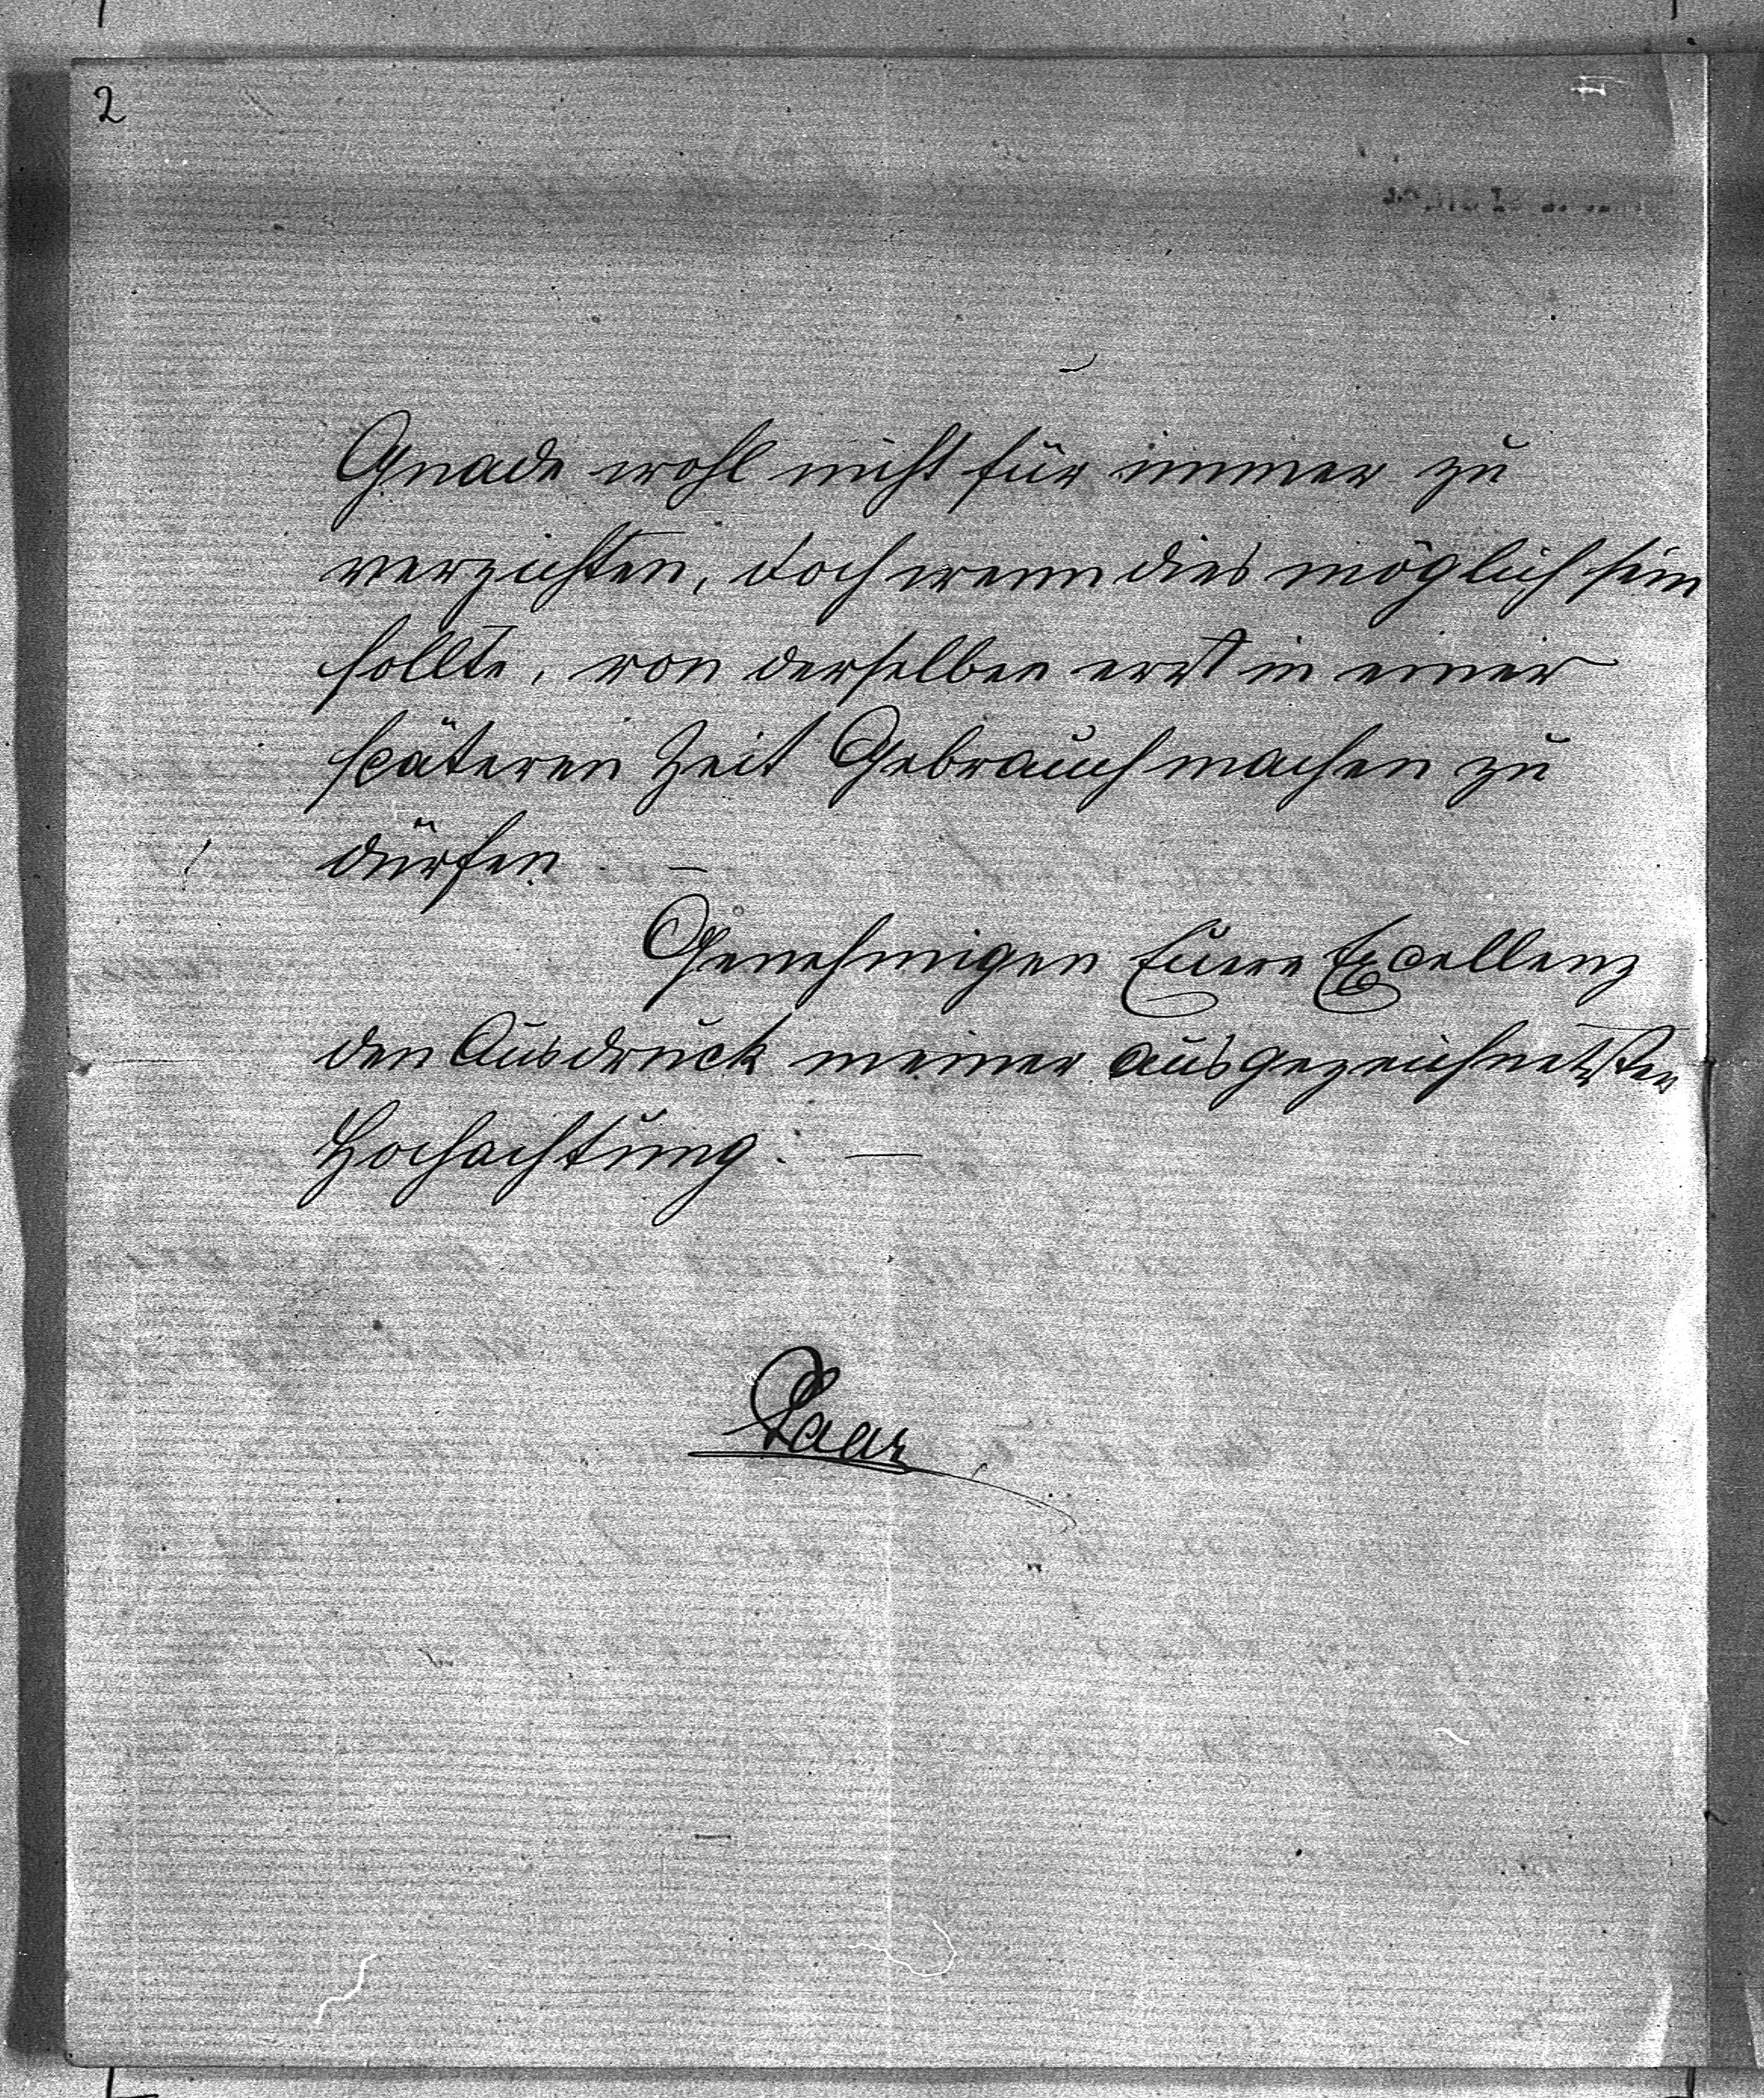 2
Gnade wohl nicht für immer zu
verzichten, doch wenn dies möglich sein
sollte, von derselben erst in einer
späteren Zeit Gebrauch machen zu
dürfen. —
Genehmigen Euere Excellenz
den Ausdruck meiner ausgezeichnetsten
Hochachtung. —
Paar